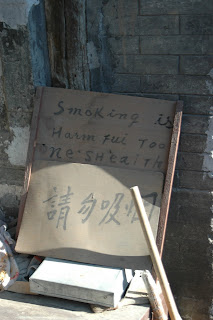 Smoking is
Harmfui Too
ne's HEaITH
請勿吸烟